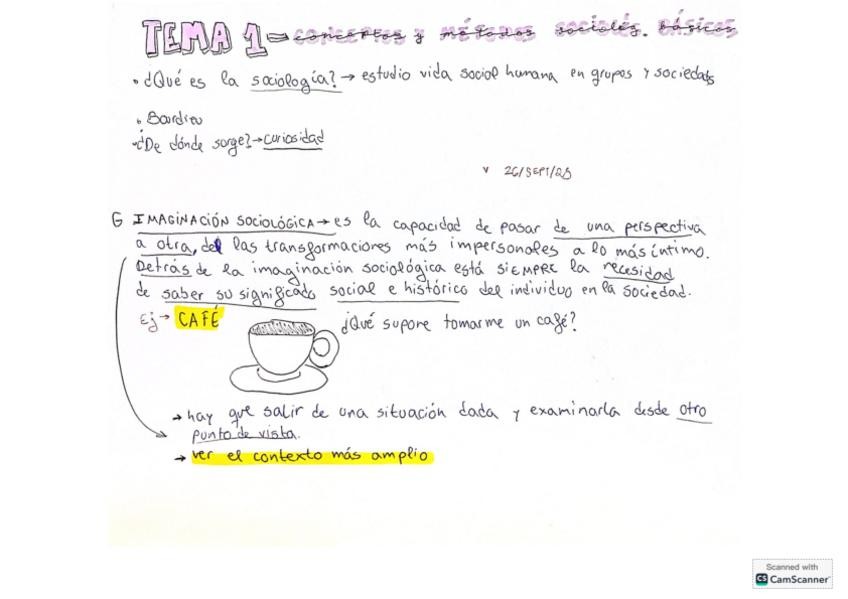 TEMA 1 - conceptos y métodos sociolés. Básicos
• ¿Qué es la sociología? → estudio vida social humana en grupos y sociedads
• Bourdieu
• ¿De dónde surge? → curiosidad
v 26/SEPT/25
G IMAGINACIÓN SOCIOLÓGICA → es la capacidad de pasar de una perspectiva
a otra, del las transformaciones más impersonales a lo más íntimo.
Detrás de la imaginación sociológica está SIEMPRE la necesidad
de saber su significado social e histórico del individuo en la sociedad.
Ej → CAFÉ
¿Qué supone tomarme un café?
→ hay que salir de una situación dada y examinarla desde otro
punto de vista.
→ ver el contexto más amplio
Scanned with
CS CamScanner